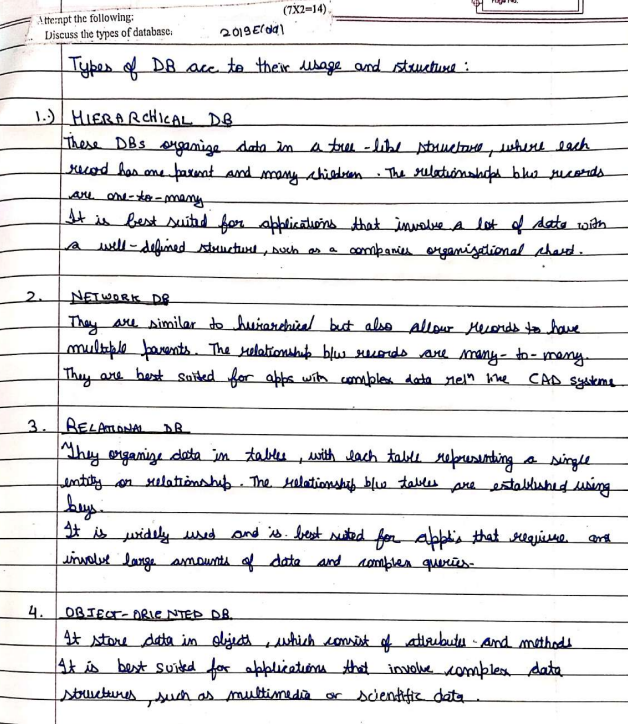 (7X2=14)
Page No.
Attempt the following:
Discuss the types of database.
2019E(Odd)
Types of DB acc to their usage and structure :
1.) HIERARCHICAL DB
These DBs organize data in a tree-like structure, where each
record has one parent and many children. The relationships b/w records
are one-to-many
It is best suited for applications that involve a lot of data with
a well-defined structure, such as a companies organizational chard.
2. NETWORK DB
They are similar to heirarchical but also allow records to have
multiple parents. The relationship b/w records are many-to-many.
They are best suited for apps with complex data relⁿ like CAD systems
3. RELATIONAL DB
They organize data in tables, with each table representing a single
entity or relationship. The relationship b/w tables are established using
keys.
It is widely used and is best suited for appl's that require and
involve large amounts of data and complex queries.
4. OBJECT-ORIENTED DB.
It store data in objects, which consist of attributes and methods
It is best suited for applications that involve complex data
structures, such as multimedia or scientific data.